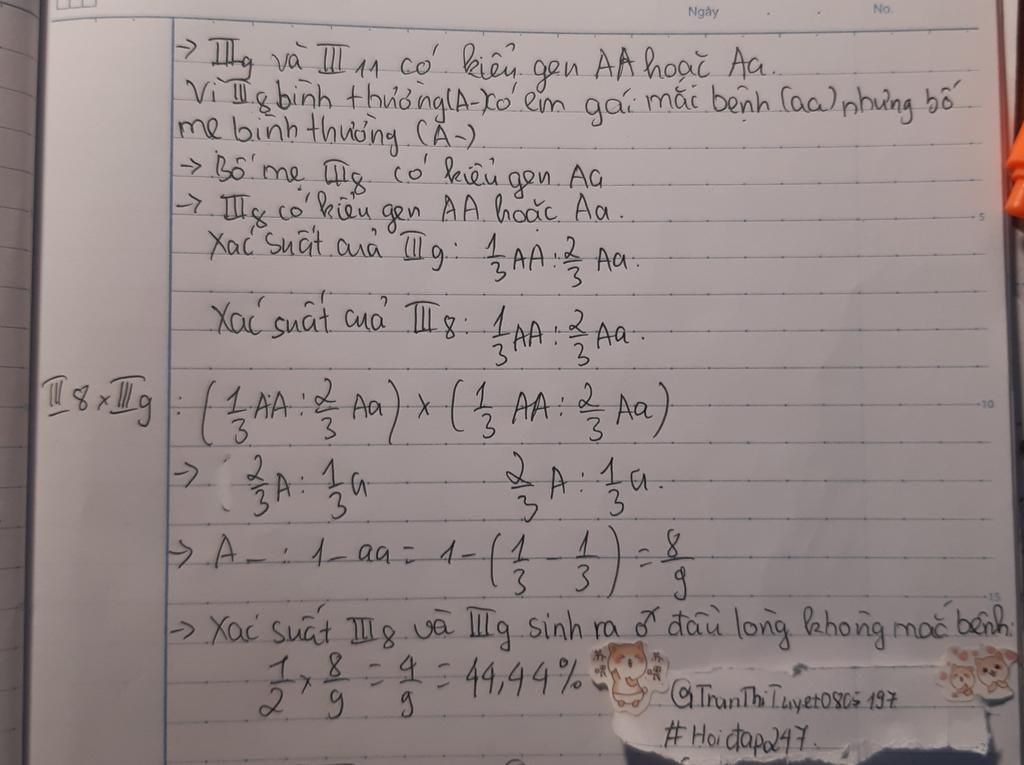 Ngày . . No.
→ III9 và III11 có kiểu gen AA hoặc Aa.
Vì III8 bình thường (A-) có em gái mắc bệnh (aa) nhưng bố
mẹ bình thường (A-)
→ Bố mẹ III8 có kiểu gen Aa
→ III8 có kiểu gen AA hoặc Aa.
Xác suất cuả III9: 1/3 AA : 2/3 Aa.
Xác suất cuả III8: 1/3 AA : 2/3 Aa.
III8 x III9 : (1/3 AA : 2/3 Aa) x (1/3 AA : 2/3 Aa)
→ 2/3 A : 1/3 a 2/3 A : 1/3 a.
→ A_ : 1 - aa = 1 - (1/3 - 1/3) = 8/9
→ Xác suất III8 và III9 sinh ra ♂ đầu lòng không mắc bệnh:
1/2 x 8/9 = 4/9 = 44,44%
@TranThiTuyet0805197
#Hoidap247.
5
10
15